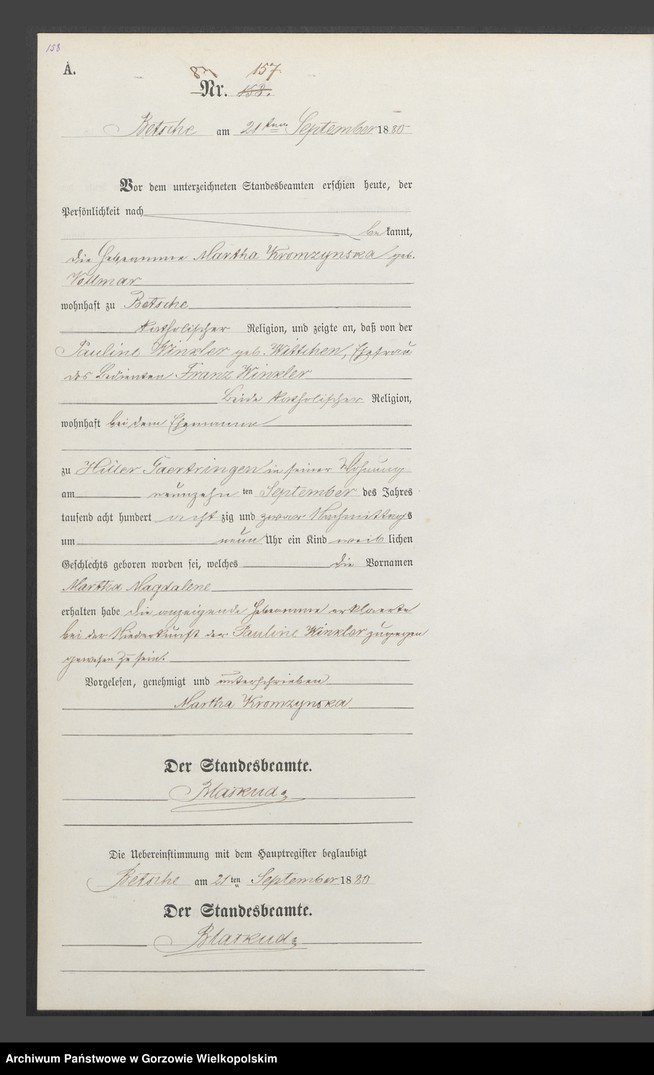 158
A.
157.
Nr. 158.
Betsche am 21ten September 1880
Vor dem unterzeichneten Standesbeamten erschien heute, der
Persönlichkeit nach
bekannt,
die Hebamme Martha Kromzynska geb.
Vollmar
wohnhaft zu Betsche
katholischer Religion, und zeigte an, daß von der
Pauline Winkler geb. Wittchen, Ehefrau
des Bedienten Franz Winkler
beide katholischer Religion,
wohnhaft bei dem Ehemanne
zu Hiller Gaertringen in seiner Wohnung
am neunzehn ten September des Jahres
tausend acht hundert acht zig und zwar Nachmittags
um neun Uhr ein Kind weib lichen
Geschlechts geboren worden sei, welches die Vornamen
Martha Magdalene
erhalten habe die anzeigende Hebamme erklaerte
bei der Niederkunft der Pauline Winkler zugegen
gewesen zu sein.
Vorgelesen, genehmigt und unterschrieben
Martha Kromzynska
Der Standesbeamte.
Die Uebereinstimmung mit dem Hauptregister beglaubigt
Betsche am 21ten September 1880
Der Standesbeamte.
Archiwum Państwowe w Gorzowie Wielkopolskim